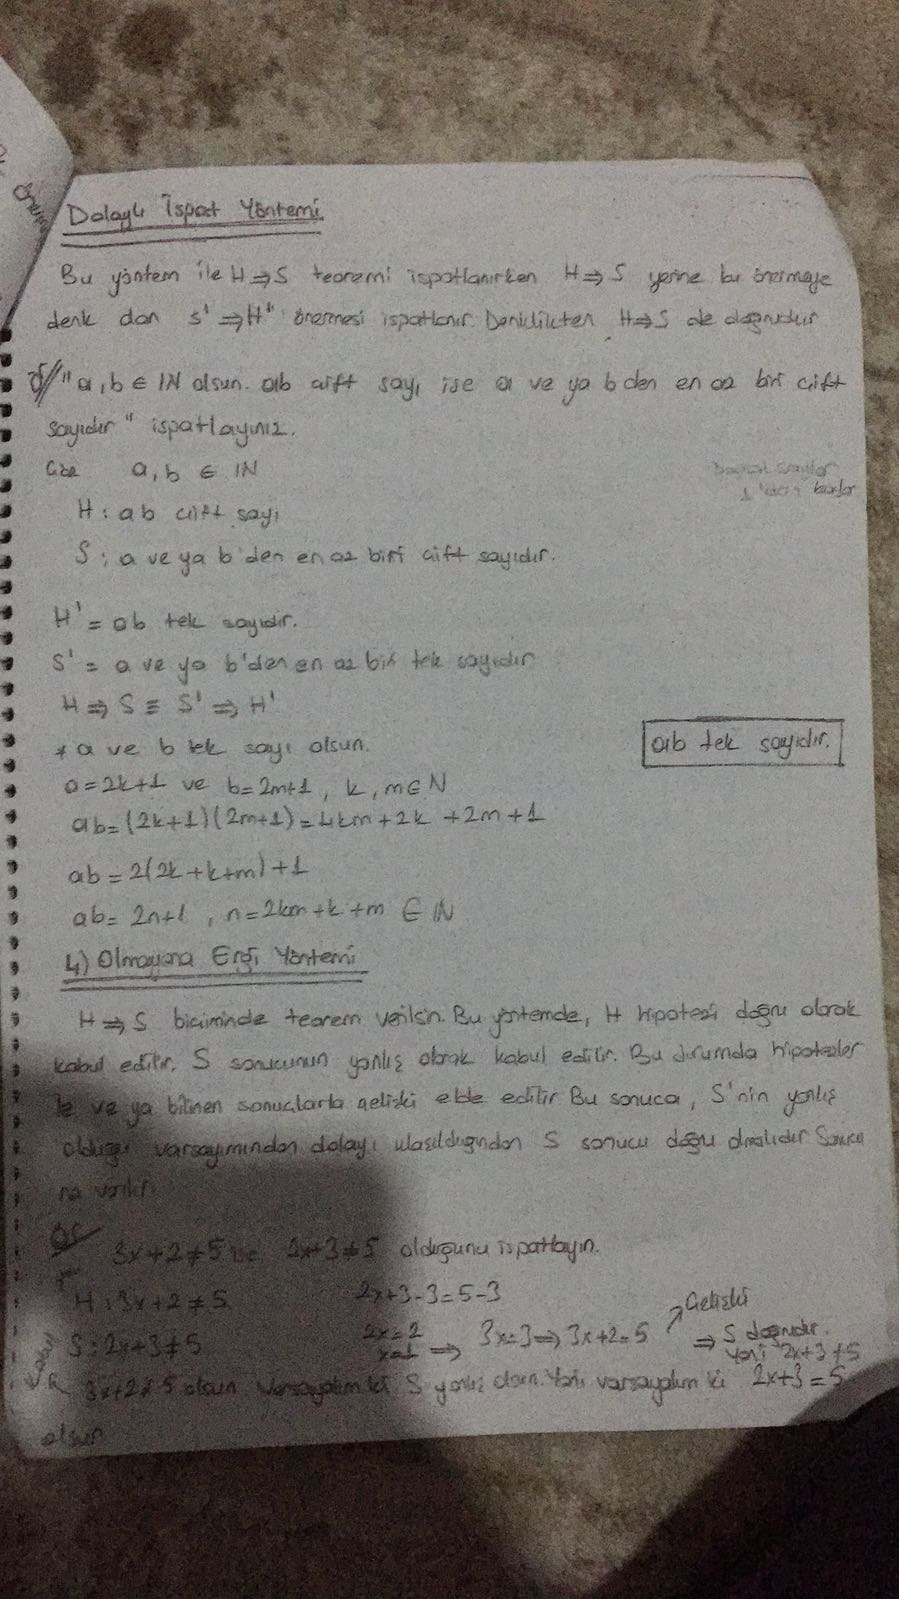 Dolaylı İspat Yöntemi
Bu yöntem ile H⇒S teoremi ispatlanırken H⇒S yerine bu önermeye
denk olan s'⇒H' önermesi ispatlanır. Denklikten H⇒S de doğrudur
Ör// "a,b ∈ IN olsun. ab çift sayı ise a ve ya b den en az biri çift
sayıdır" ispatlayınız.
Çöz a, b ∈ IN
H: ab çift sayı
S: a ve ya b'den en az biri çift sayıdır.
H' = ab tek sayıdır.
S' = a ve ya b'den en az biri tek sayıdır
H⇒S ≡ S'⇒H'
* a ve b tek sayı olsun.
ab tek sayıdır.
a=2k+1 ve b=2m+1, k, m∈N
ab=(2k+1)(2m+1)=4km+2k+2m+1
ab=2(2k+k+m)+1
ab= 2n+1, n=2km+k+m ∈ IN
4) Olmayana Ergi Yöntemi
H⇒S biçiminde teorem verilsin. Bu yöntemde, H hipotezi doğru olarak
kabul edilir. S sonucunun yanlış olarak kabul edilir. Bu durumda hipotezler
le ve ya bilinen sonuçlarla çelişki elde edilir Bu sonuca, S'nin yanlış
olduğu varsayımından dolayı ulaşıldığından S sonucu doğru olmalıdır Sonucu
na varılır.
Ör 3x+2≠5 ise 2x+3≠5 olduğunu ispatlayın.
H: 3x+2≠5 2x+3-3=5-3
S: 2x+3≠5 2x=2 x=1 ⇒ 3x=3⇒3x+2=5 Çelişki ⇒ S doğrudur. yani 2x+3≠5
3x+2≠5 olsun Varsayalım ki S yanlış olsun. Yani varsayalım ki 2x+3=5
olsun